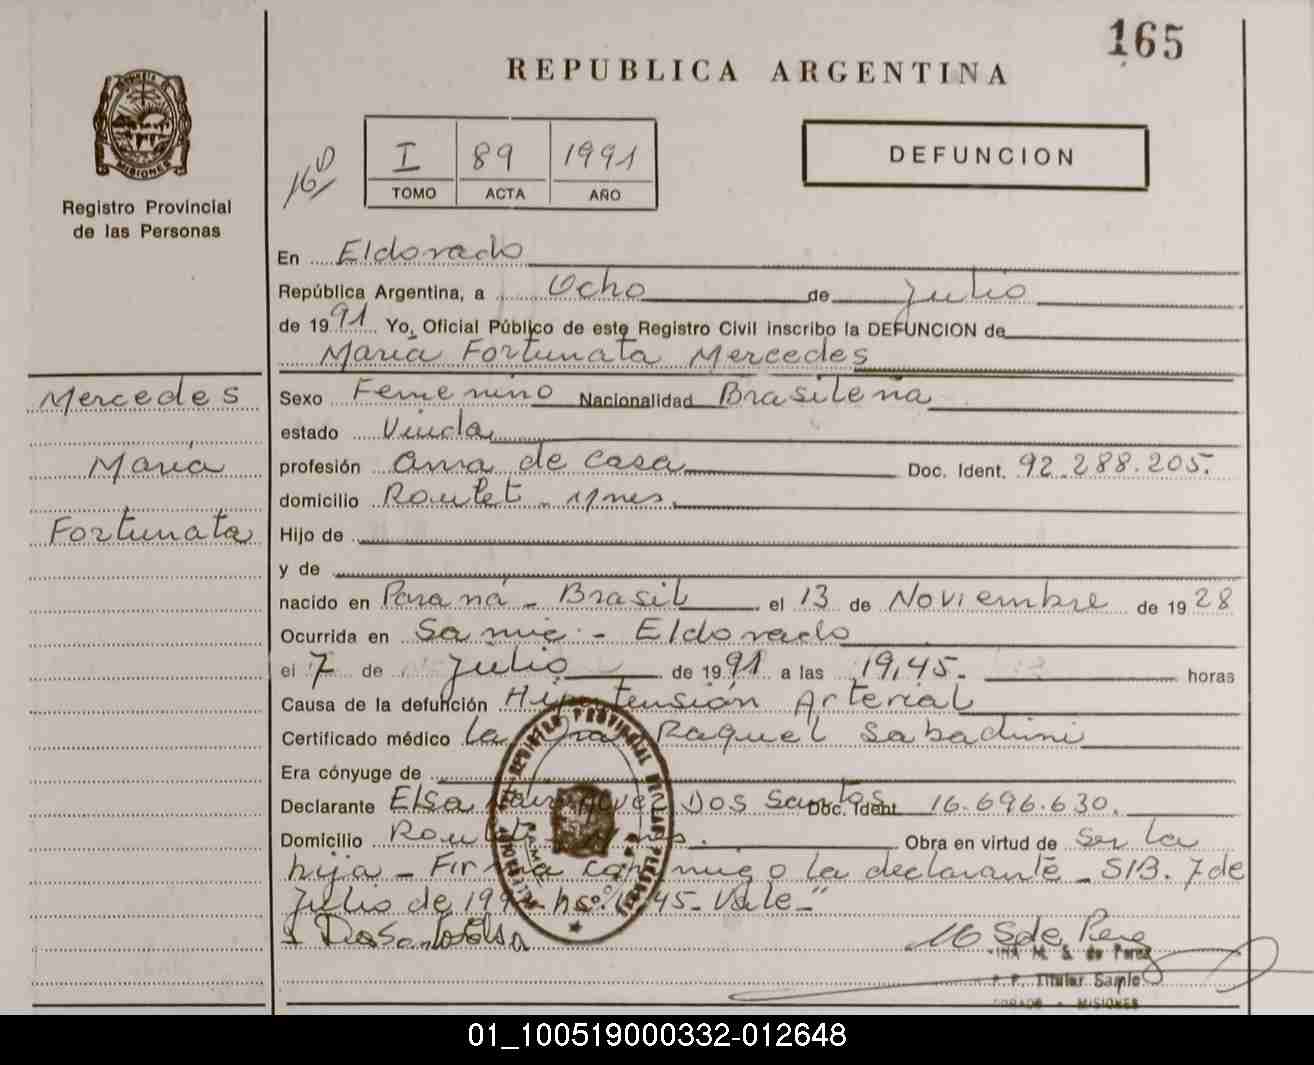 165
REPUBLICA ARGENTINA
MISIONES
Registro Provincial
de las Personas
I 89 1991
TOMO ACTA AÑO
DEFUNCION
En Eldorado
República Argentina, a Ocho de Julio
de 1991 Yo, Oficial Público de este Registro Civil inscribo la DEFUNCION de
María Fortunata Mercedes
Mercedes
María
Fortunata
Sexo Femenino Nacionalidad Brasileña
estado Viuda
profesión ama de casa Doc. Ident. 92.288.205.
domicilio Roulet - Mnes.
Hijo de
y de
nacido en Paraná - Brasil el 13 de Noviembre de 1928
Ocurrida en Samic - Eldorado
el 7 de Julio de 1991 a las 19,45. horas
Causa de la defunción Hipertensión Arterial
Certificado médico La Dra Raquel Sabadini
Era cónyuge de
Declarante Elsa Dos Santos Doc. Ident 16.696.630.
Domicilio Roulet Obra en virtud de ser la
hija - Firma conmigo la declarante - S/B. 7 de
Julio de 199 hs. 45 - Vale -"
Dos Santos Elsa
M. S. de Perez
Titular Samic
MISIONES
01_100519000332-012648